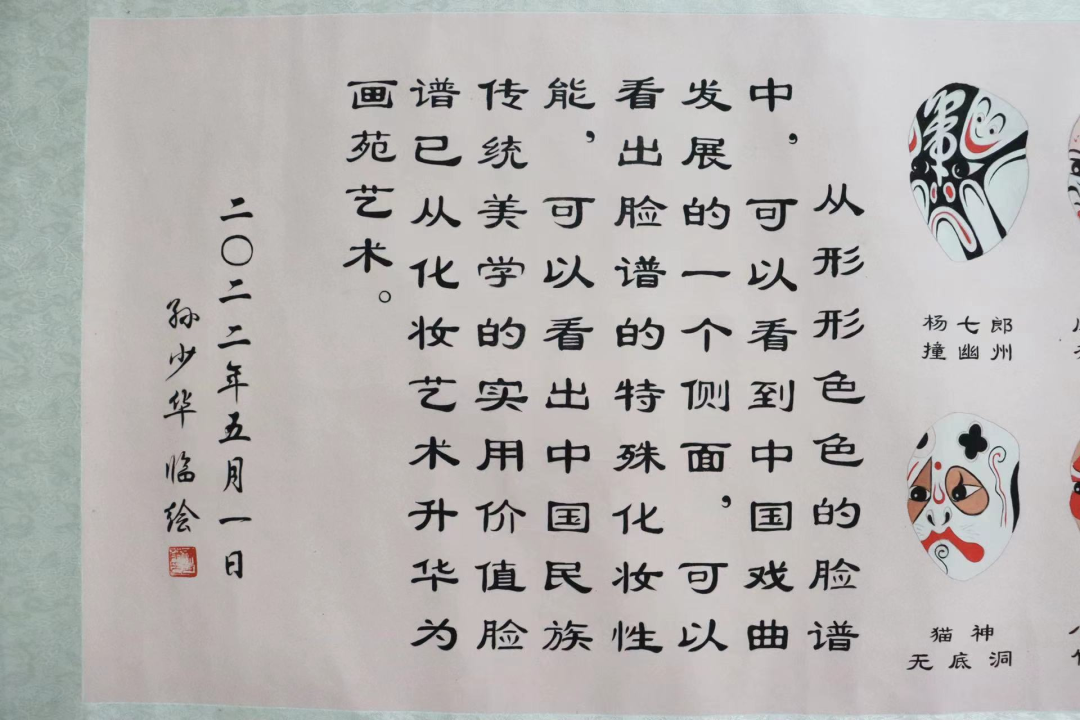 杨七郎
撞幽州
猫神
无底洞
从形形色色的脸谱
中，可以看到中国戏曲
发展的一个侧面，可以
看出脸谱的特殊化妆性
能，可以看出中国民族
传统美学的实用价值脸
谱已从化妆艺术升华为
画苑艺术。
二〇二二年五月一日
孙少华临绘